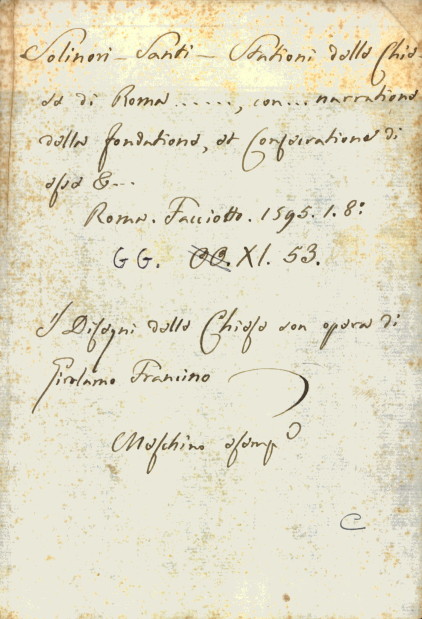 Solinori - Santi - Stationi delle Chie-
se di Roma ......, con... narratione
della fondatione, et Consecratione di
esse &...
Roma. Facciotto. 1595. 1. 8:
GG. OO. XI. 53.
I Disegni delle Chiese son opera di
Girolamo Francino
Meschino esemp°
C